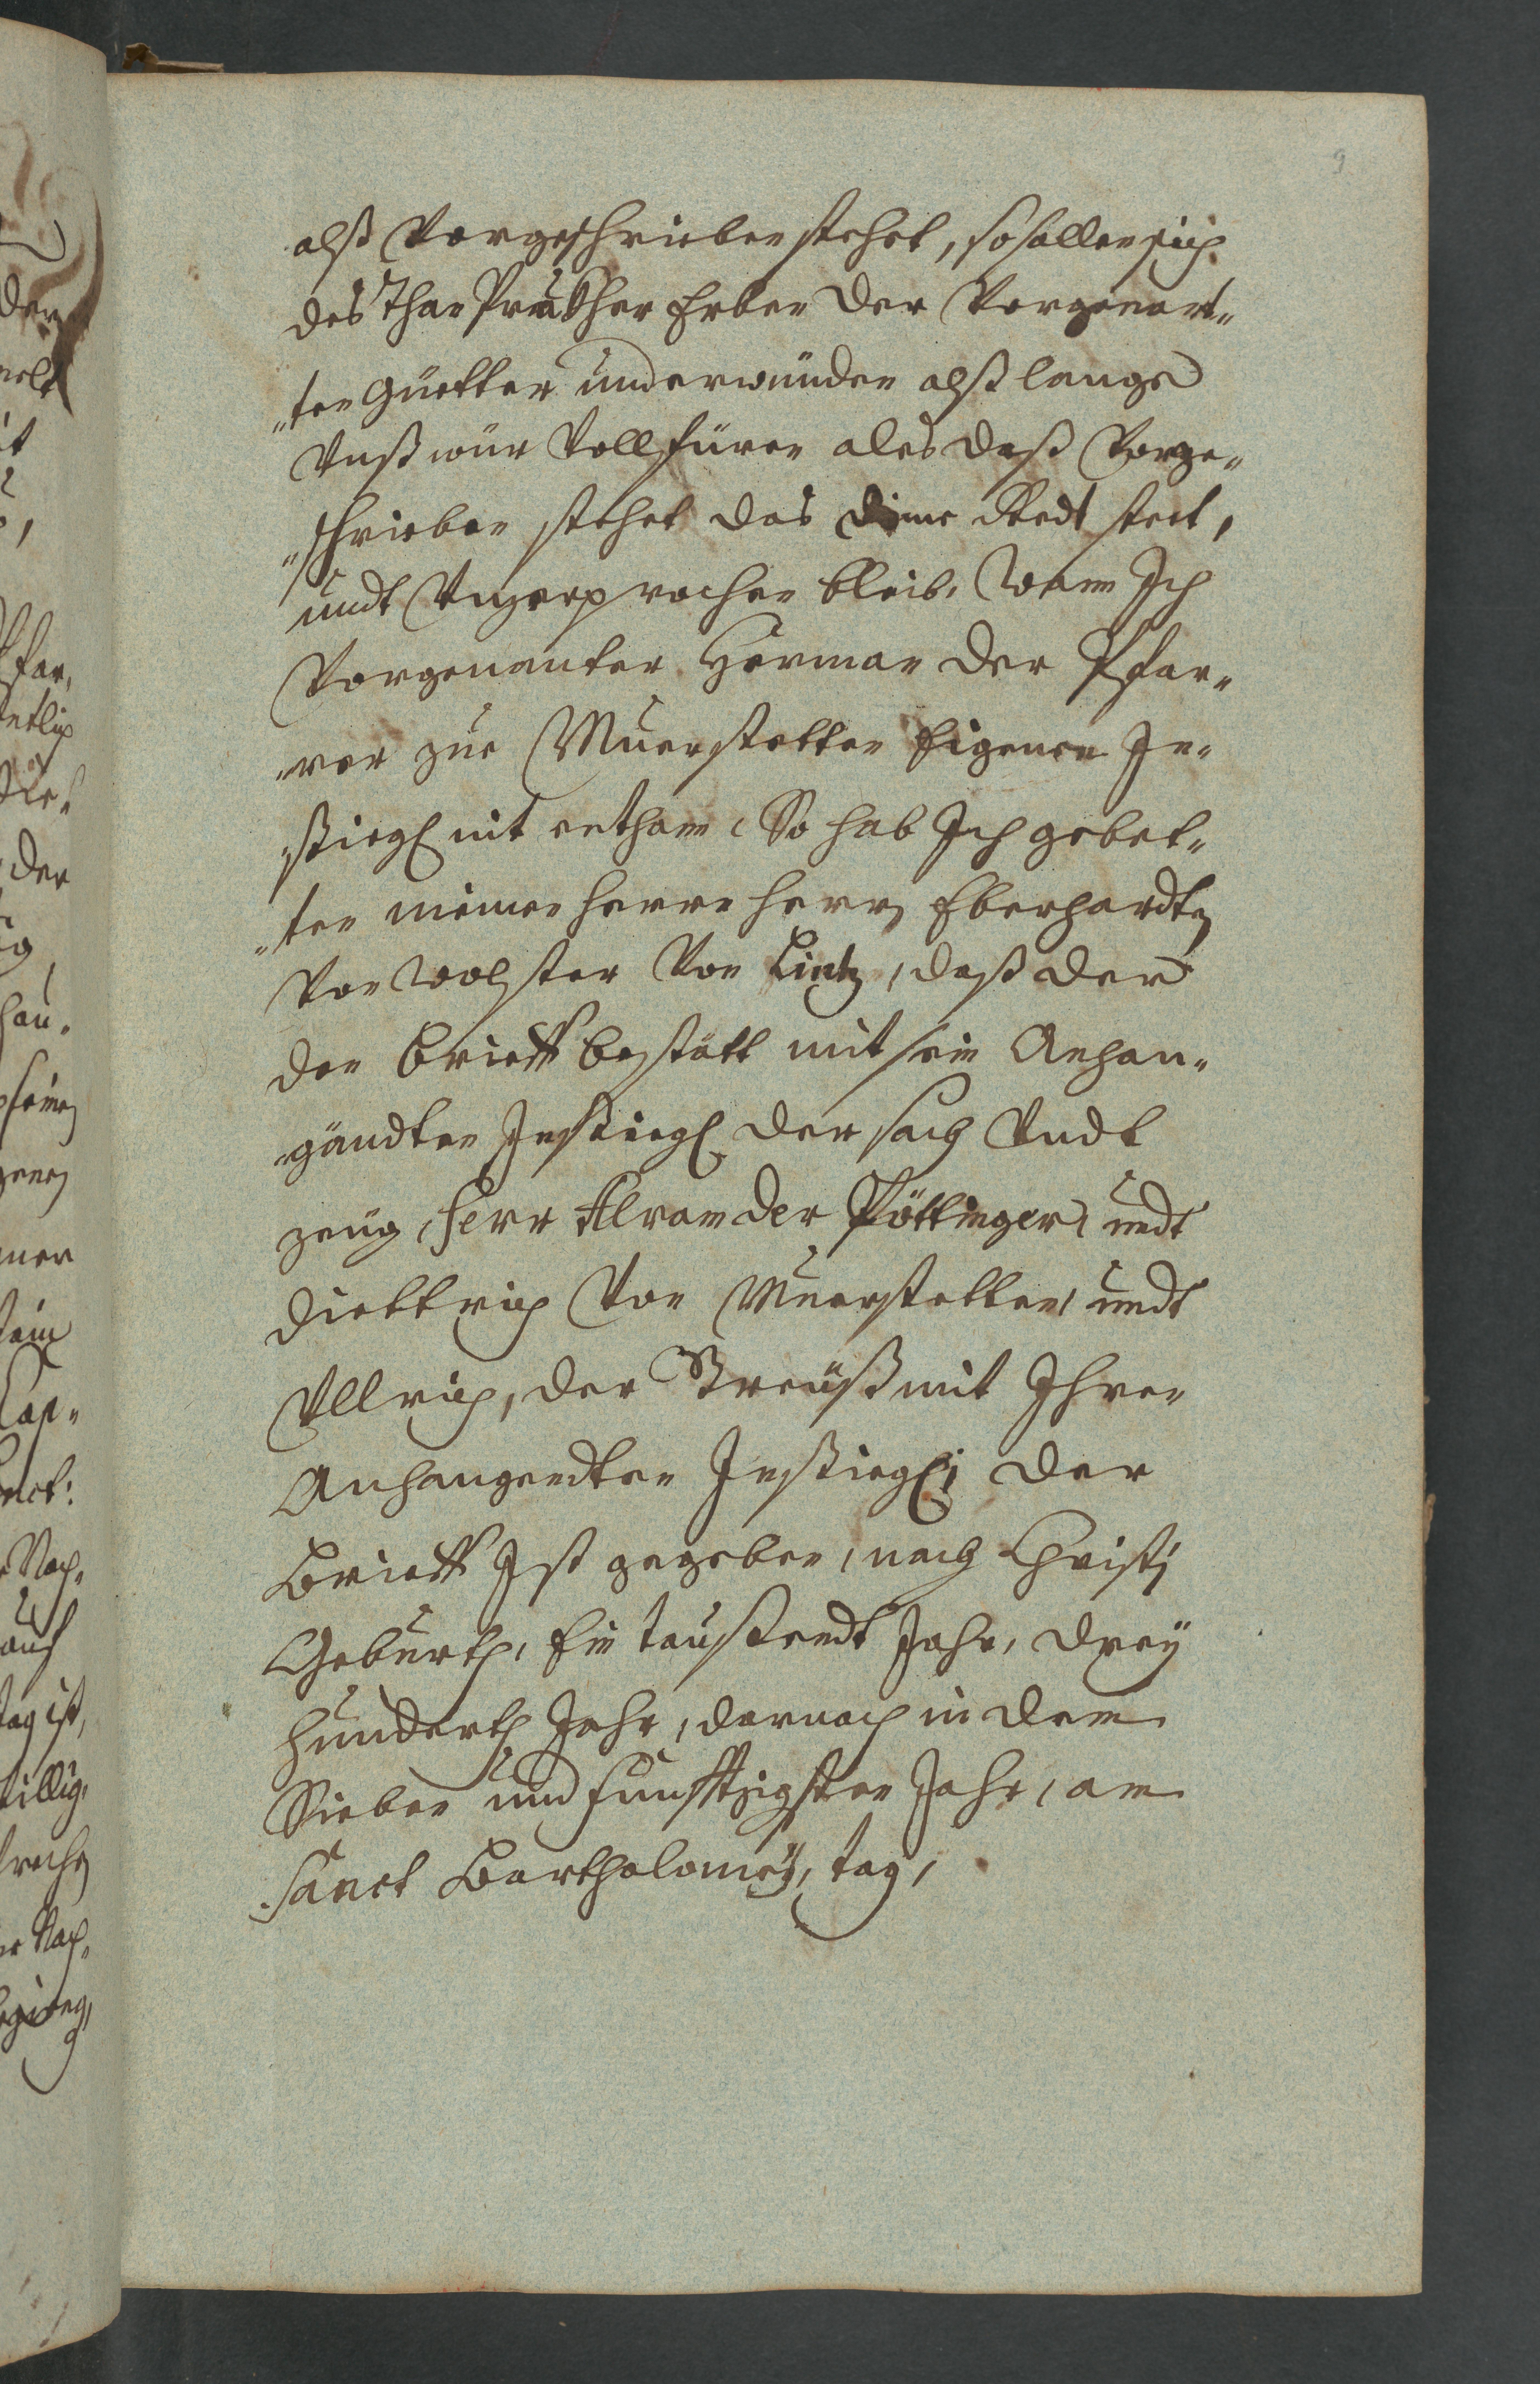 9
alß Vorgeschrieben stehet, so sollen sich
des Than Pruckher Erben der Vorgenant„
„ten Güetter underwünden alß lange
Vnß wür Vollfüren ales daß Vorge„
„schrieben stehet das dime Redt stett,
undt Vnzerprochen bleib, Wann Ich
Vorgenanter Herman der Pfar„
„rer zue Muerstetten Eigenen In„
„siegl nit enthan, So hab Ich gebet„
„ten meinen Herrn Herrn Eberhardten
Von Wolster Von Lintz, daß der
den Brieff bestätt mit sein Anhan„
„gändten Insiegl der sach Vndt
zeug, Herr Alram der Pöttinger, undt
Diettrich Von Muerstetten undt
Vllrich, der Preuß mit Ihren
Anhangendten Insiegl; der
Brieff Ist gegeben, nach Christj
Geburth, Ein taussendt Jahr, drey
hunderth Jahr, darnach in dem
Sieben und funfftzigsten Jahr, am
Sanct Bartholomej, tag,